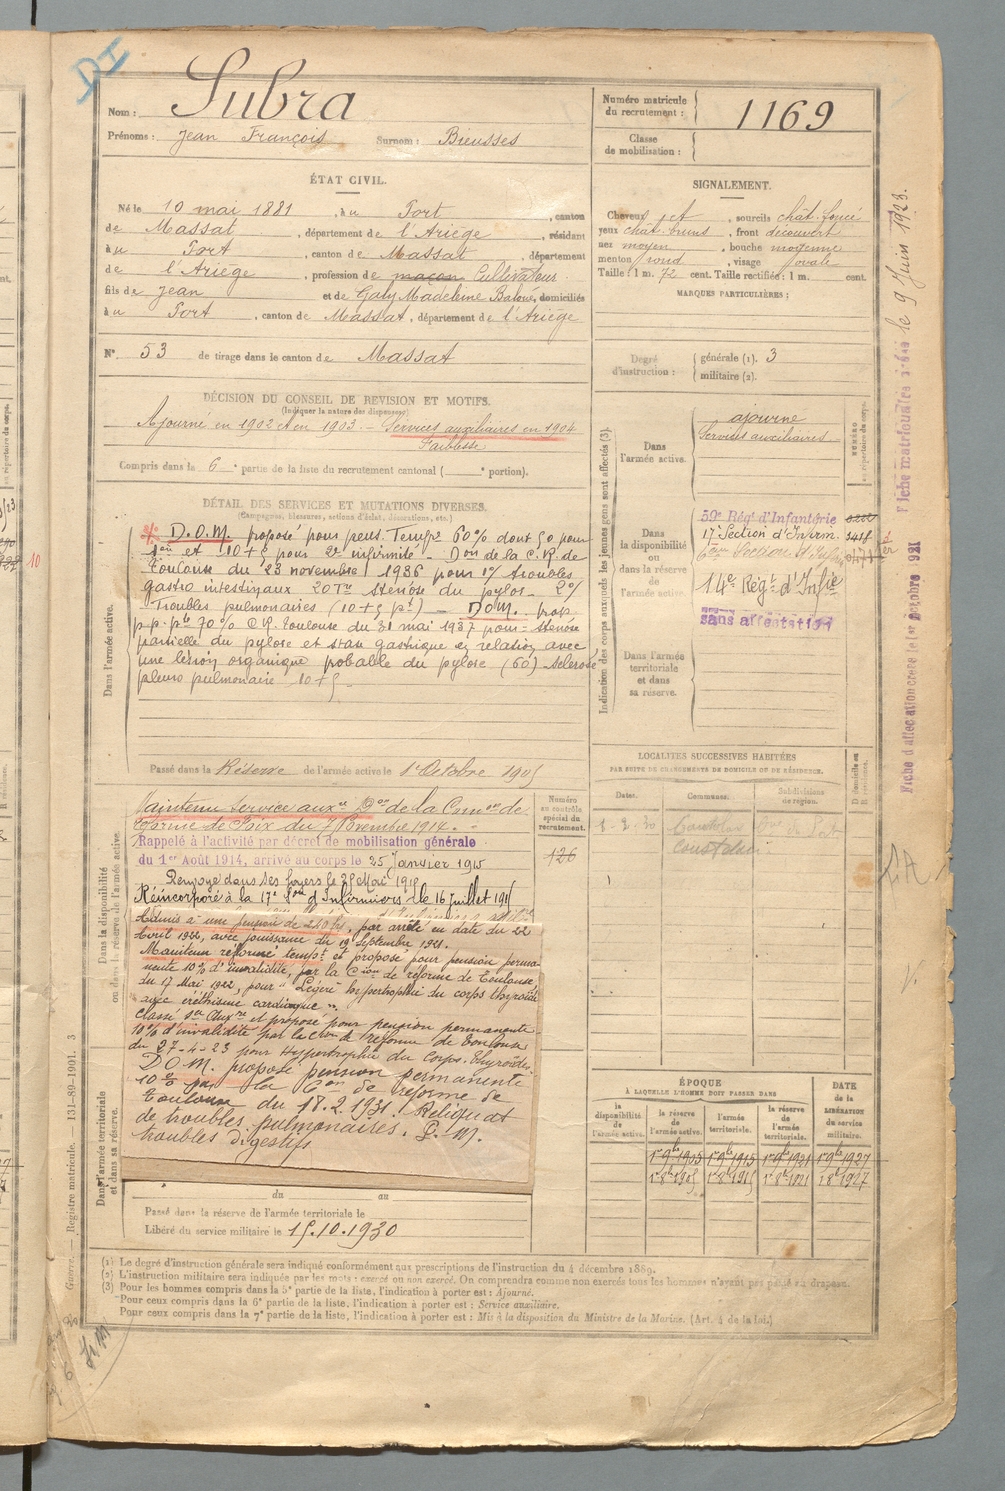 DI
Nom : Subra
Prénoms : Jean François Surnom : Bieusses
Numéro matricule
du recrutement : 1169
Classe
de mobilisation :
ÉTAT CIVIL.
Né le 10 mai 1881, à u Port, canton
de Massat, département de l'Ariège, résidant
à u Port, canton de Massat, département
de l'Ariège, profession de maçon Cultivateur
fils de Jean et de Galy Madeleine, domiciliés
à u Port, canton de Massat, département de l'Ariège
N° 53 de tirage dans le canton de Massat
SIGNALEMENT.
Cheveux et, sourcils chât. foncé
yeux chât. bruns, front découvert
nez moyen, bouche moyenne
menton rond, visage ovale
Taille : 1 m. 72 cent. Taille rectifiée : 1 m. cent.
MARQUES PARTICULIÈRES :
Degré
d'instruction :
générale (1). 3
militaire (2).
DÉCISION DU CONSEIL DE REVISION ET MOTIFS.
(Indiquer la nature des dispenses)
Ajourné en 1902 et en 1903. – Services auxiliaires en 1904
Faiblesse
Compris dans la 6e partie de la liste du recrutement cantonal ( e portion).
DÉTAIL DES SERVICES ET MUTATIONS DIVERSES.
(Campagnes, blessures, actions d'éclat, décorations, etc.)
Dans l'armée active.
D.O.M. proposé pour pens. Temp.re 60% dont 50 pour
1ère et 10+5 pour 2e infirmité – Don de la C.R. de
Toulouse du 23 novembre 1936 pour 1°/ troubles
gastro intestinaux sténose du pylos – 2°/
Troubles pulmonaires (10+5 pt) – D.O.M. prop.
p.p. 70% C.R. Toulouse du 31 mai 1937 pour = sténose
partielle du pylore et stase gastrique en relation avec
une lésion organique probable du pylore (60) sclérose
pleuro pulmonaire 10+5 –
Passé dans la Réserve de l'armée active le 1er Octobre 1905
Indication des corps auxquels les jeunes gens sont affectés (3).
Dans
l'armée active.
ajourné
Services auxiliaires
NUMÉRO
au répertoire du corps.
Dans
la disponibilité
ou
dans la réserve
de l'armée active.
59e Rég.t d'Infanterie
17e Section d'Infirm.
14e Rég.t d'Infie
sans affectation
Dans l'armée
territoriale
et dans
sa réserve.
LOCALITÉS SUCCESSIVES HABITÉES
PAR SUITE DE CHANGEMENTS DE DOMICILE OU DE RÉSIDENCE.
Dates. Communes. Subdivisions
de région.
D domicile ou
R résidence.
Dans la disponibilité
ou dans la réserve de l'armée active.
Maintenu Service auxre Don de la Comon de
réforme de Foix du 7 Novembre 1914.
Rappelé à l'activité par décret de mobilisation générale
du 1er Août 1914, arrivé au corps le 25 Janvier 1915
Renvoyé dans ses foyers le 25 Mai 1915
Réincorporé à la 17e Son d'Infirmiers le 16 juillet 1915
Numéro
au contrôle
spécial du
recrutement.
126
Admis à une pension de 240 frs, par arrêté en date du 22
Avril 1922, avec jouissance du 19 Septembre 1921.
Maintenu réformé tempt et proposé pour pension perma-
nente 10% d'invalidité, par la Cion de réforme de Toulouse
du 17 Mai 1922, pour "Légère hypertrophie du corps thyroïde
avec éréthisme cardiaque".
Classé Ser Auxre et proposé pour pension permanente
10% d'invalidité par la Con de réforme de Toulouse
du 27-4-23 pour Hypertrophie du Corps Thyroïde
D.O.M. proposé pension permanente
10% par la Con de réforme de
Toulouse du 18.2.1931. Reliquat
de troubles pulmonaires. P.M.
troubles digestifs
Dans l'armée territoriale
et dans sa réserve.
du au
Passé dans la réserve de l'armée territoriale le
Libéré du service militaire le 15.10.1930
ÉPOQUE
À LAQUELLE L'HOMME DOIT PASSER DANS
la
disponibilité
de
l'armée active.
la réserve
de
l'armée active.
l'armée
territoriale.
la réserve
de
l'armée
territoriale.
DATE
de la
LIBÉRATION
du service
militaire.
1r 9bre 1905 1r 9bre 1915 1r 9bre 1921 1r 9bre 1927
1r 8bre 1905 1r 8bre 1915 1r 8bre 1921 1 8bre 1927
(1) Le degré d'instruction générale sera indiqué conformément aux prescriptions de l'instruction du 4 décembre 1889.
(2) L'instruction militaire sera indiquée par les mots : exercé ou non exercé. On comprendra comme non exercés tous les hommes n'ayant pas passé au drapeau.
(3) Pour les hommes compris dans la 5e partie de la liste, l'indication à porter est : Ajourné.
Pour ceux compris dans la 6e partie de la liste, l'indication à porter est : Service auxiliaire.
Pour ceux compris dans la 7e partie de la liste, l'indication à porter est : Mis à la disposition du Ministre de la Marine. (Art. 4 de la loi.)
Guerre. — Registre matricule. — 131-89-1901. 3
le 9 Juin 1923.